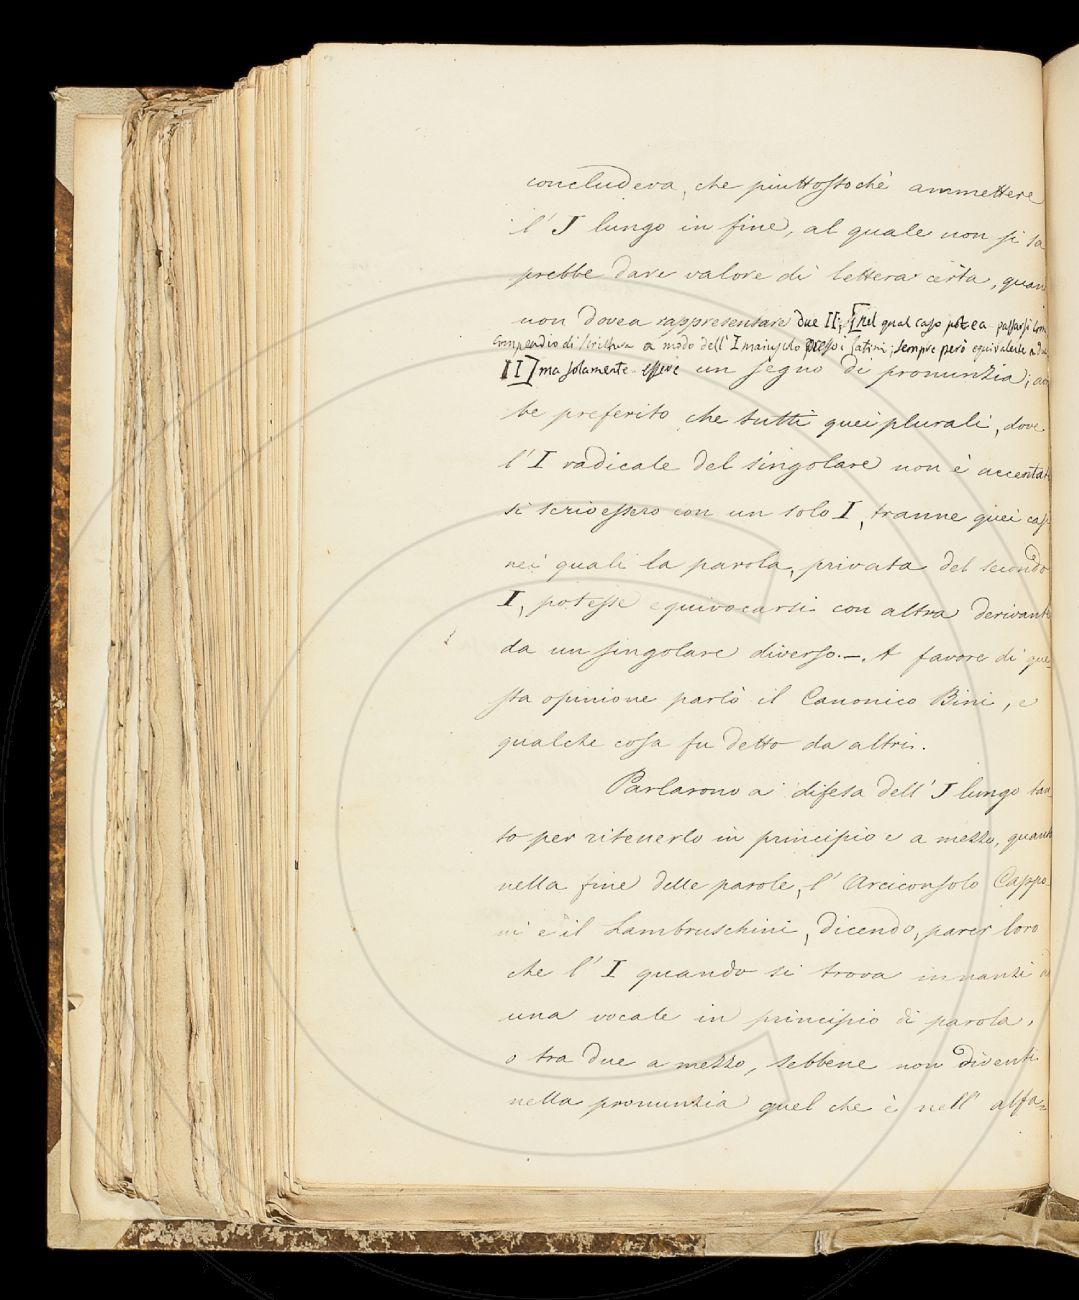 concludeva, che piuttostochè ammettere
l'J lungo in fine, al quale non si sa
prebbe dare valore di lettera certa, quan
non dovea rappresentare due II; [nel qual caso potea passarsi com
compendio di scrittura a modo dell'I maiuscolo presso i latini; sempre però equivalente a due
II] ma solamente essere un segno di pronunzia; av
be preferito che tutti quei plurali, dove
l'I radicale del singolare non è accentat
si scrivessero con un solo I, tranne quei cas
nei quali la parola, privata del secondo
I, potesse equivocarsi con altra derivant
da un singolare diverso. —. A favore di que
sta opinione parlò il Canonico Bini, e
qualche cosa fu detto da altri.
Parlarono a difesa dell'J lungo tan
to per ritenerlo in principio e a mezzo, quant
nella fine delle parole, l'Arciconsolo Cappo-
ni e il Lambruschini, dicendo, parer loro
che l'I quando si trova innanzi ad
una vocale in principio di parola,
o tra due a mezzo, sebbene non diventi
nella pronunzia quel che è nell'alfa-